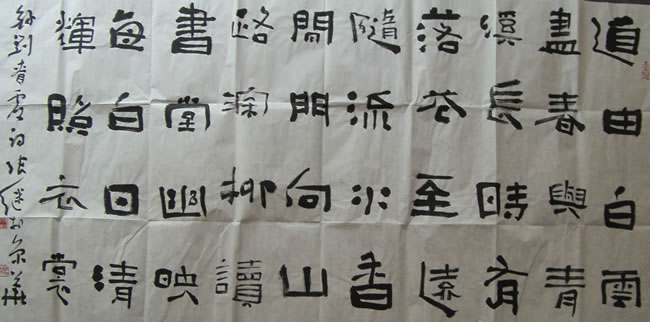 道由白雲
盡春與青
溪長時有
落花至遠
隨流水香
閒門向山
路深柳讀
書堂幽映
每白日清
輝照衣裳
錄劉眘虛詩張继於京華